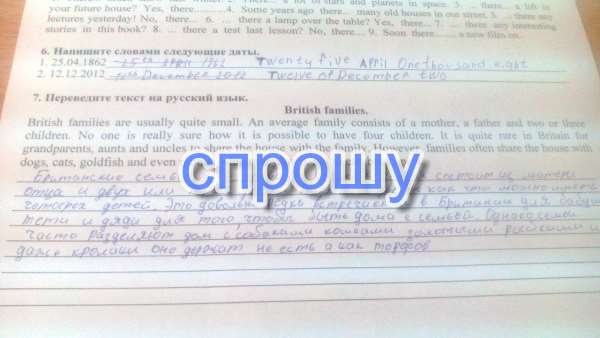 your future house? Yes, there... 4. Some years ago there... many old houses in our street. 5. ... there any
lectures yesterday! No, there... 6. ... there a lamp over the table? Yes, there... 7. ... there any interesting
stories in this book? 8. ... there a test last lesson? No, there... 9. Soon there... ... a new film on..
6. Напишите словами следующие даты.
1. 25.04.1862 Twenty five April One thousand eight
2. 12.12.2012 Twelve of December two
7. Переведите текст на русский язык.
British families.
British families are usually quite small. An average family consists of a mother, a father and two or three
children. No one is really sure how it is possible to have four children. It is quite rare in Britain for
grandparents, aunts and uncles to share the house with the family. However, families often share the house with
dogs, cats, goldfish and even
спрошу
Британские семьи состоит из матери
отца и двух или как что можно иметь
четырех детей. Это довольно редко встречается в Британии для бабушк
тети и дяди для того чтобы дома с семьей. Однако семьи
часто разделяют дом с собаками кошками золотыми рыбками и
даже кролики оно держат не есть а как